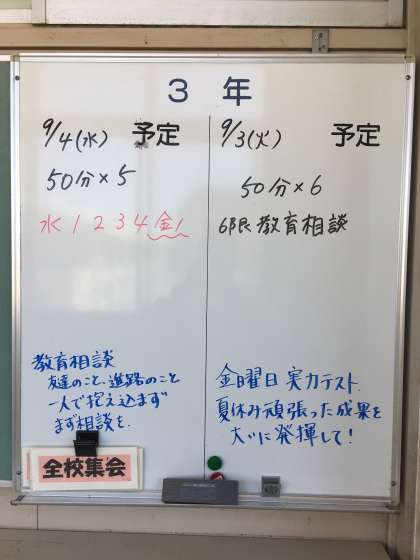 3年
9/4(水) 予定
50分×5
水1234金1
教育相談
友達のこと、進路のこと
一人で抱え込まず
まず相談を.
全校集会
9/3(火) 予定
50分×6
6限 教育相談
金曜日 実力テスト.
夏休み頑張った成果を
大いに発揮して!